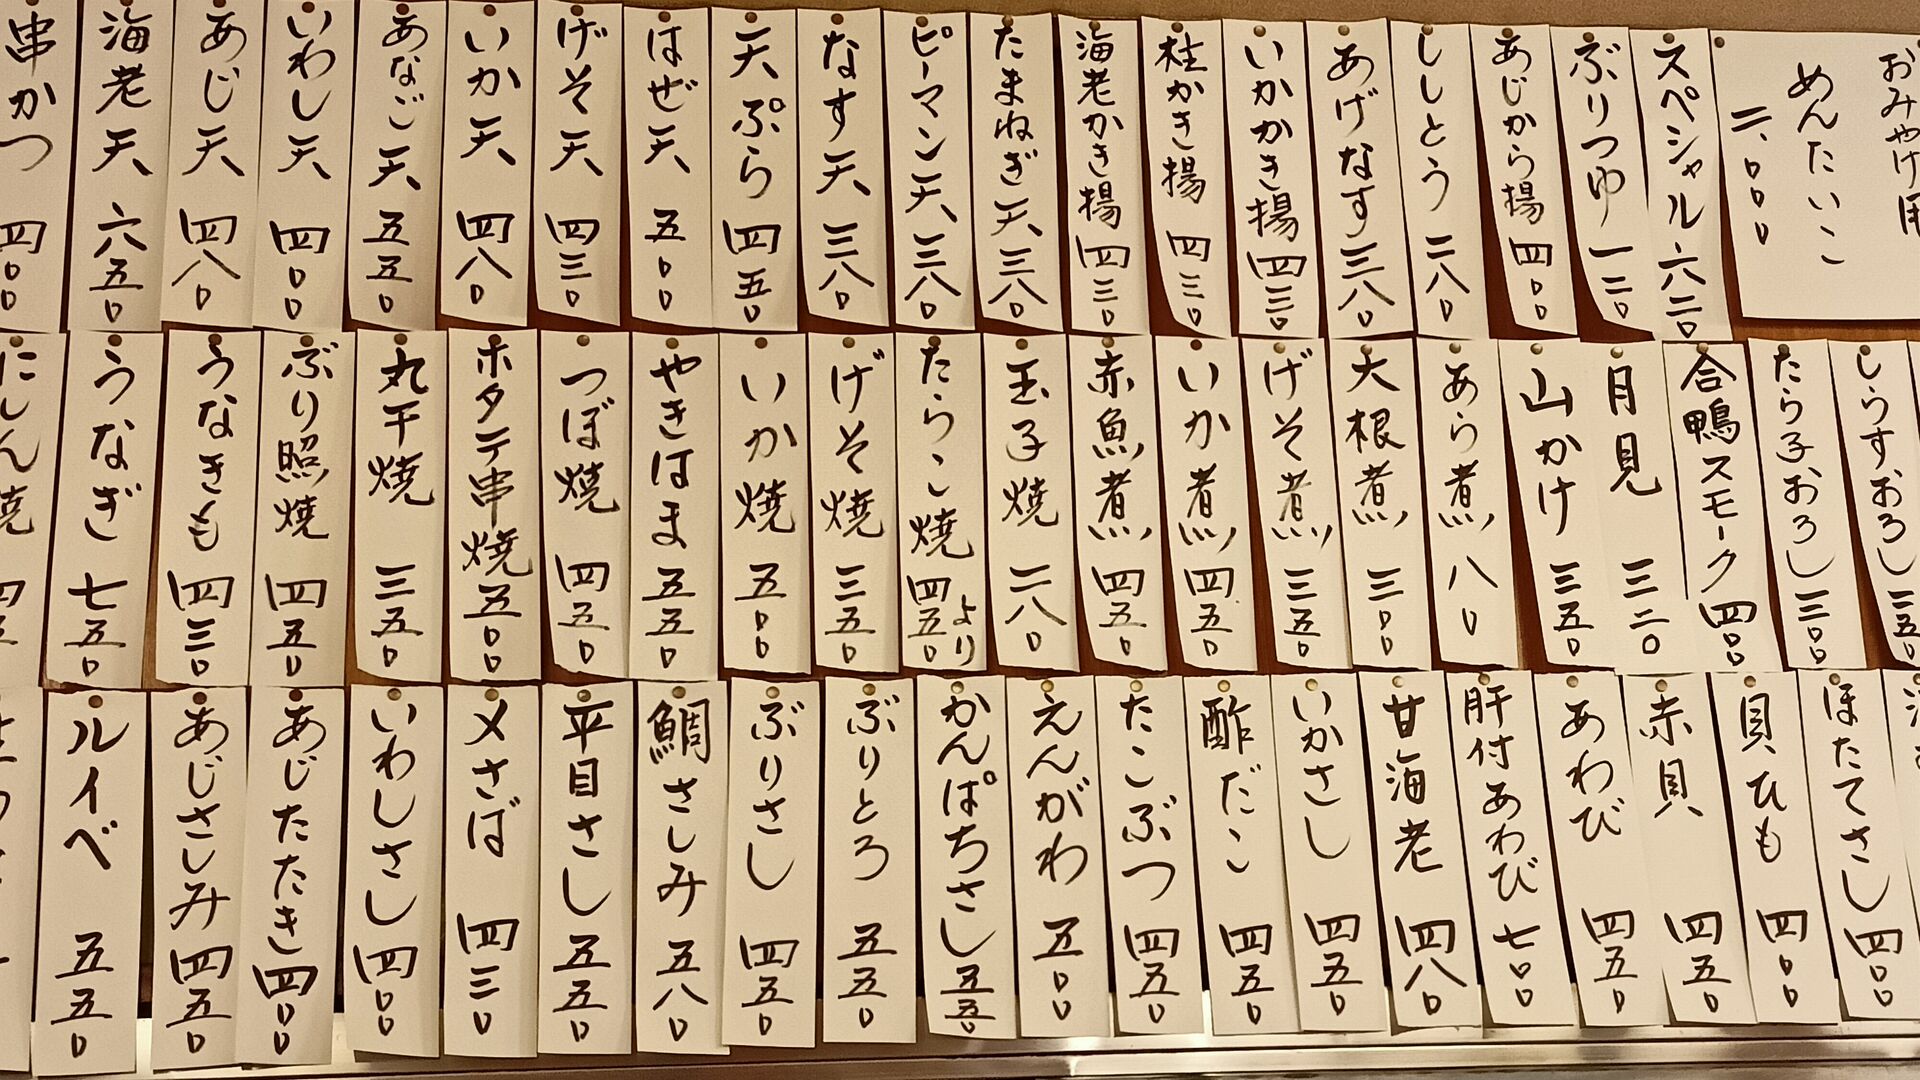 おみやげ用
めんたいこ
二、〇〇〇
スペシャル 六二〇
ぶりつゆ 一二〇
あじから揚 四〇〇
ししとう 二八〇
あげなす 三八〇
いかかき揚 四三〇
桂かき揚 四三〇
海老かき揚 四三〇
たまねぎ天 三八〇
ピーマン天 三八〇
なす天 三八〇
天ぷら 四五〇
はぜ天 五〇〇
げそ天 四三〇
いか天 四八〇
あなご天 五五〇
いわし天 四〇〇
あじ天 四八〇
海老天 六五〇
串かつ 四〇〇
しらすおろし 三五〇
たら子おろし 三〇〇
合鴨スモーク 四〇〇
月見 三二〇
山かけ 三五〇
あら煮 八〇
大根煮 三〇〇
げそ煮 三五〇
いか煮 四五〇
赤魚煮 四五〇
玉子焼 二八〇
たらこ焼 四五〇より
げそ焼 三五〇
いか焼 五〇〇
やきはま 五五〇
つぼ焼 四五〇
ホタテ串焼 五〇〇
丸干焼 三五〇
ぶり照焼 四五〇
うなきも 四三〇
うなぎ 七五〇
にしん焼
ほたてさし 四〇〇
貝ひも 四〇〇
赤貝 四五〇
あわび 四五〇
肝付あわび 七〇〇
甘海老 四八〇
いかさし 四五〇
酢だこ 四五〇
たこぶつ 四五〇
えんがわ 五〇〇
かんぱちさし 五五〇
ぶりとろ 五五〇
ぶりさし 四五〇
鯛さしみ 五八〇
平目さし 五五〇
〆さば 四三〇
いわしさし 四〇〇
あじたたき 四〇〇
あじさしみ 四五〇
ルイベ 五五〇